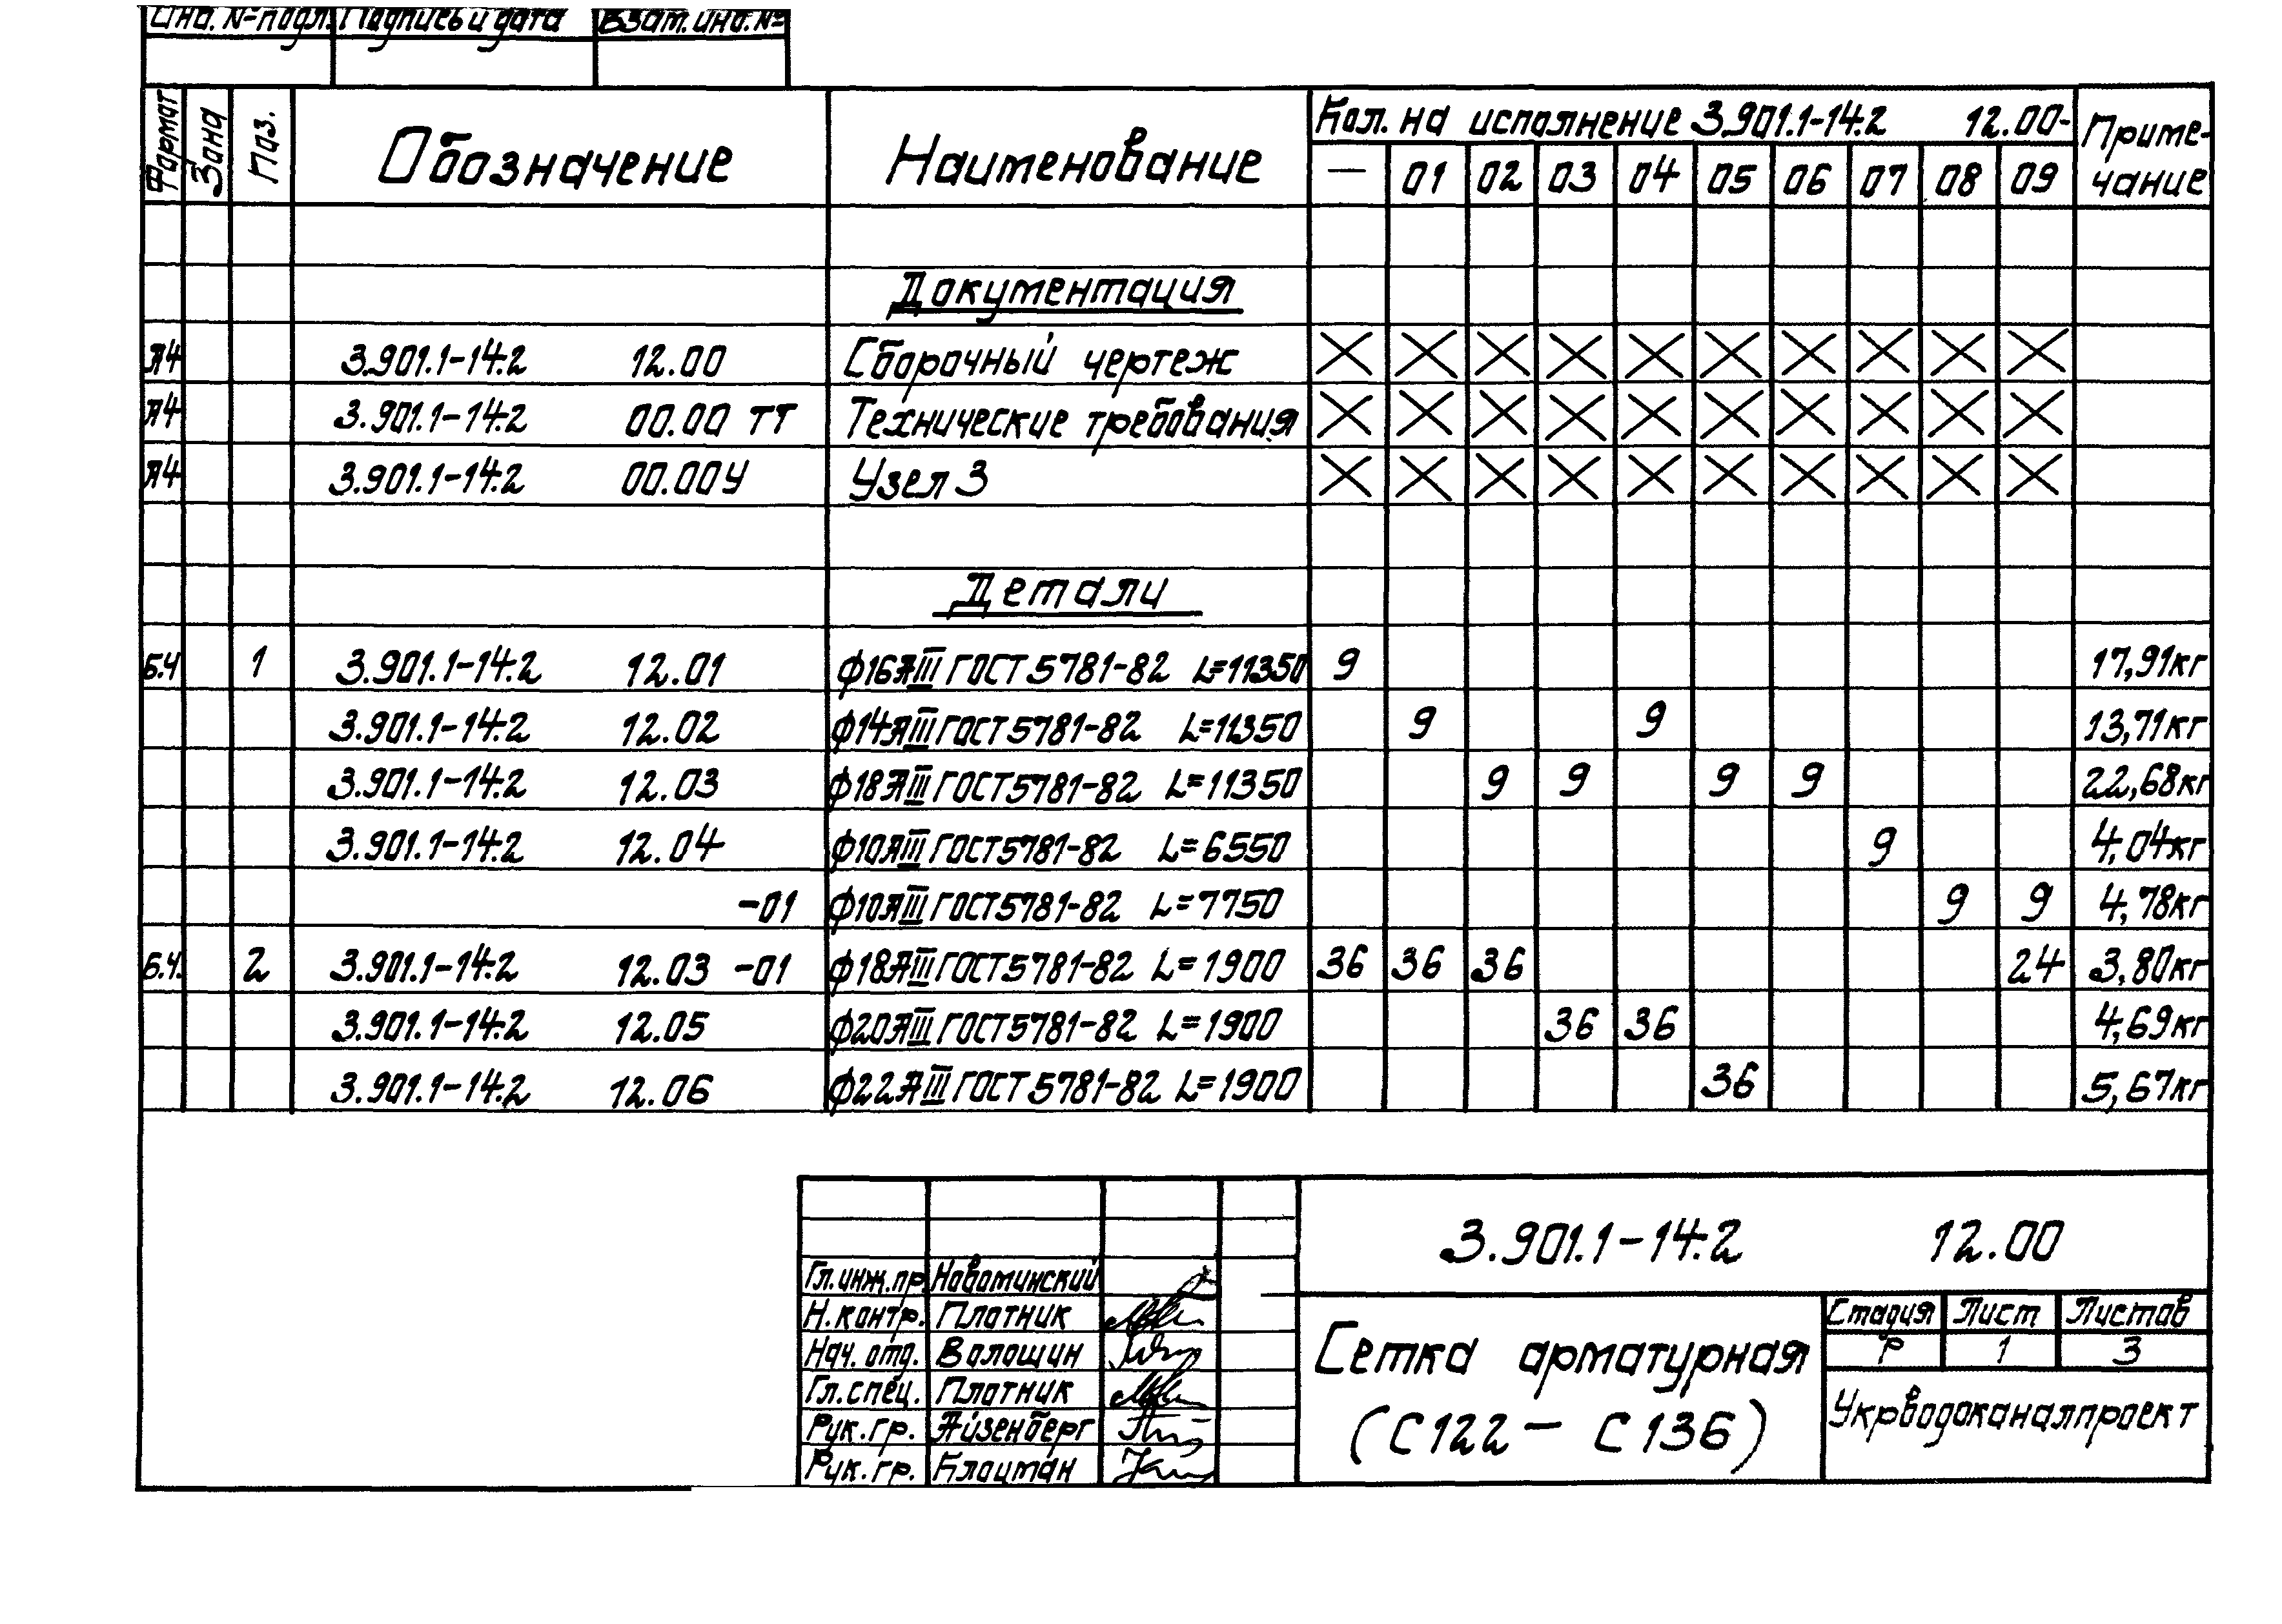 Инв. № подл. Подпись и дата Взам. инв. №
Формат Зона Поз. Обозначение Наименование Кол. на исполнение 3.901.1-14.2 12.00- Приме-
чание
— 01 02 03 04 05 06 07 08 09
Документация
А4 3.901.1-14.2 12.00 Сборочный чертеж
А4 3.901.1-14.2 00.00 ТТ Технические требования
А4 3.901.1-14.2 00.00У Узел 3
Детали
Б.Ч 1 3.901.1-14.2 12.01 ф16АIII ГОСТ 5781-82 L=11350 9 17,91кг
3.901.1-14.2 12.02 ф14АIII ГОСТ 5781-82 L=11350 9 9 13,71кг
3.901.1-14.2 12.03 ф18АIII ГОСТ 5781-82 L=11350 9 9 9 9 22,68кг
3.901.1-14.2 12.04 ф10АIII ГОСТ 5781-82 L=6550 9 4,04кг
-01 ф10АIII ГОСТ 5781-82 L=7750 9 9 4,78кг
Б.Ч. 2 3.901.1-14.2 12.03 -01 ф18АIII ГОСТ 5781-82 L=1900 36 36 36 24 3,80кг
3.901.1-14.2 12.05 ф20АIII ГОСТ 5781-82 L=1900 36 36 4,69кг
3.901.1-14.2 12.06 ф22АIII ГОСТ 5781-82 L=1900 36 5,67кг
3.901.1-14.2 12.00
Гл.инж.пр. Новоминский
Н.контр. Плотник
Нач. отд. Волошин
Гл.спец. Плотник
Рук.гр. Айзенберг
Рук.гр. Клоцман
Сетка арматурная
(С122 — С136)
Стадия Лист Листов
Р 1 3
Укрводоканалпроект